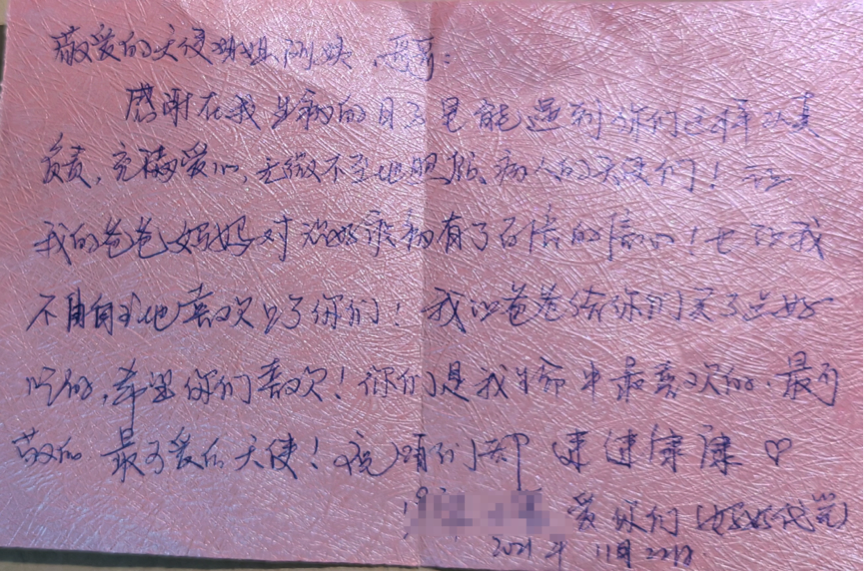 敬爱的天使姐姐阿姨、哥哥:
感谢在我生病的日子里能遇到你们这样认真
负责,充满爱心,无微不至地照顾病人的天使们!
我的爸爸妈妈对治好我病有了百倍的信心!也让我
不由自主地喜欢上了你们!我让爸爸给你们买了点好
吃的,希望你们喜欢!你们是我生命中最喜欢的、最可
敬的 最可爱的天使!祝你们都 健健康康 ♡
爱你们(妈妈代笔)
2021年 11月22日